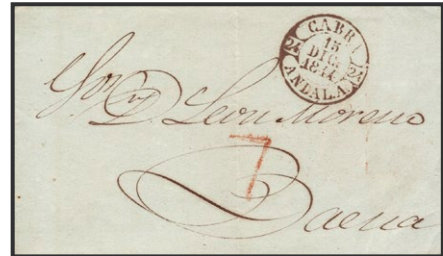 CABRA
24 15 DIC. 1844 24
ANDAL.A
Sor. D. Leon Moreno
7
Baena